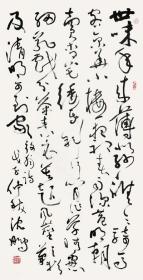 世味年来薄似纱谁令骑马
客京华小楼一夜听春雨深巷明朝
卖杏花矮纸斜行闲作草晴窗
细乳戏分茶素衣莫起风尘叹犹
及清明可到家
仲秋沈鹏